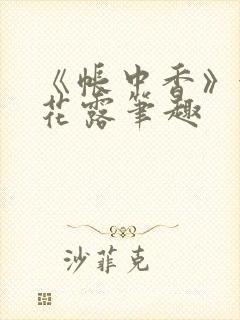 《帐中香》
花露笔趣
沙菲克